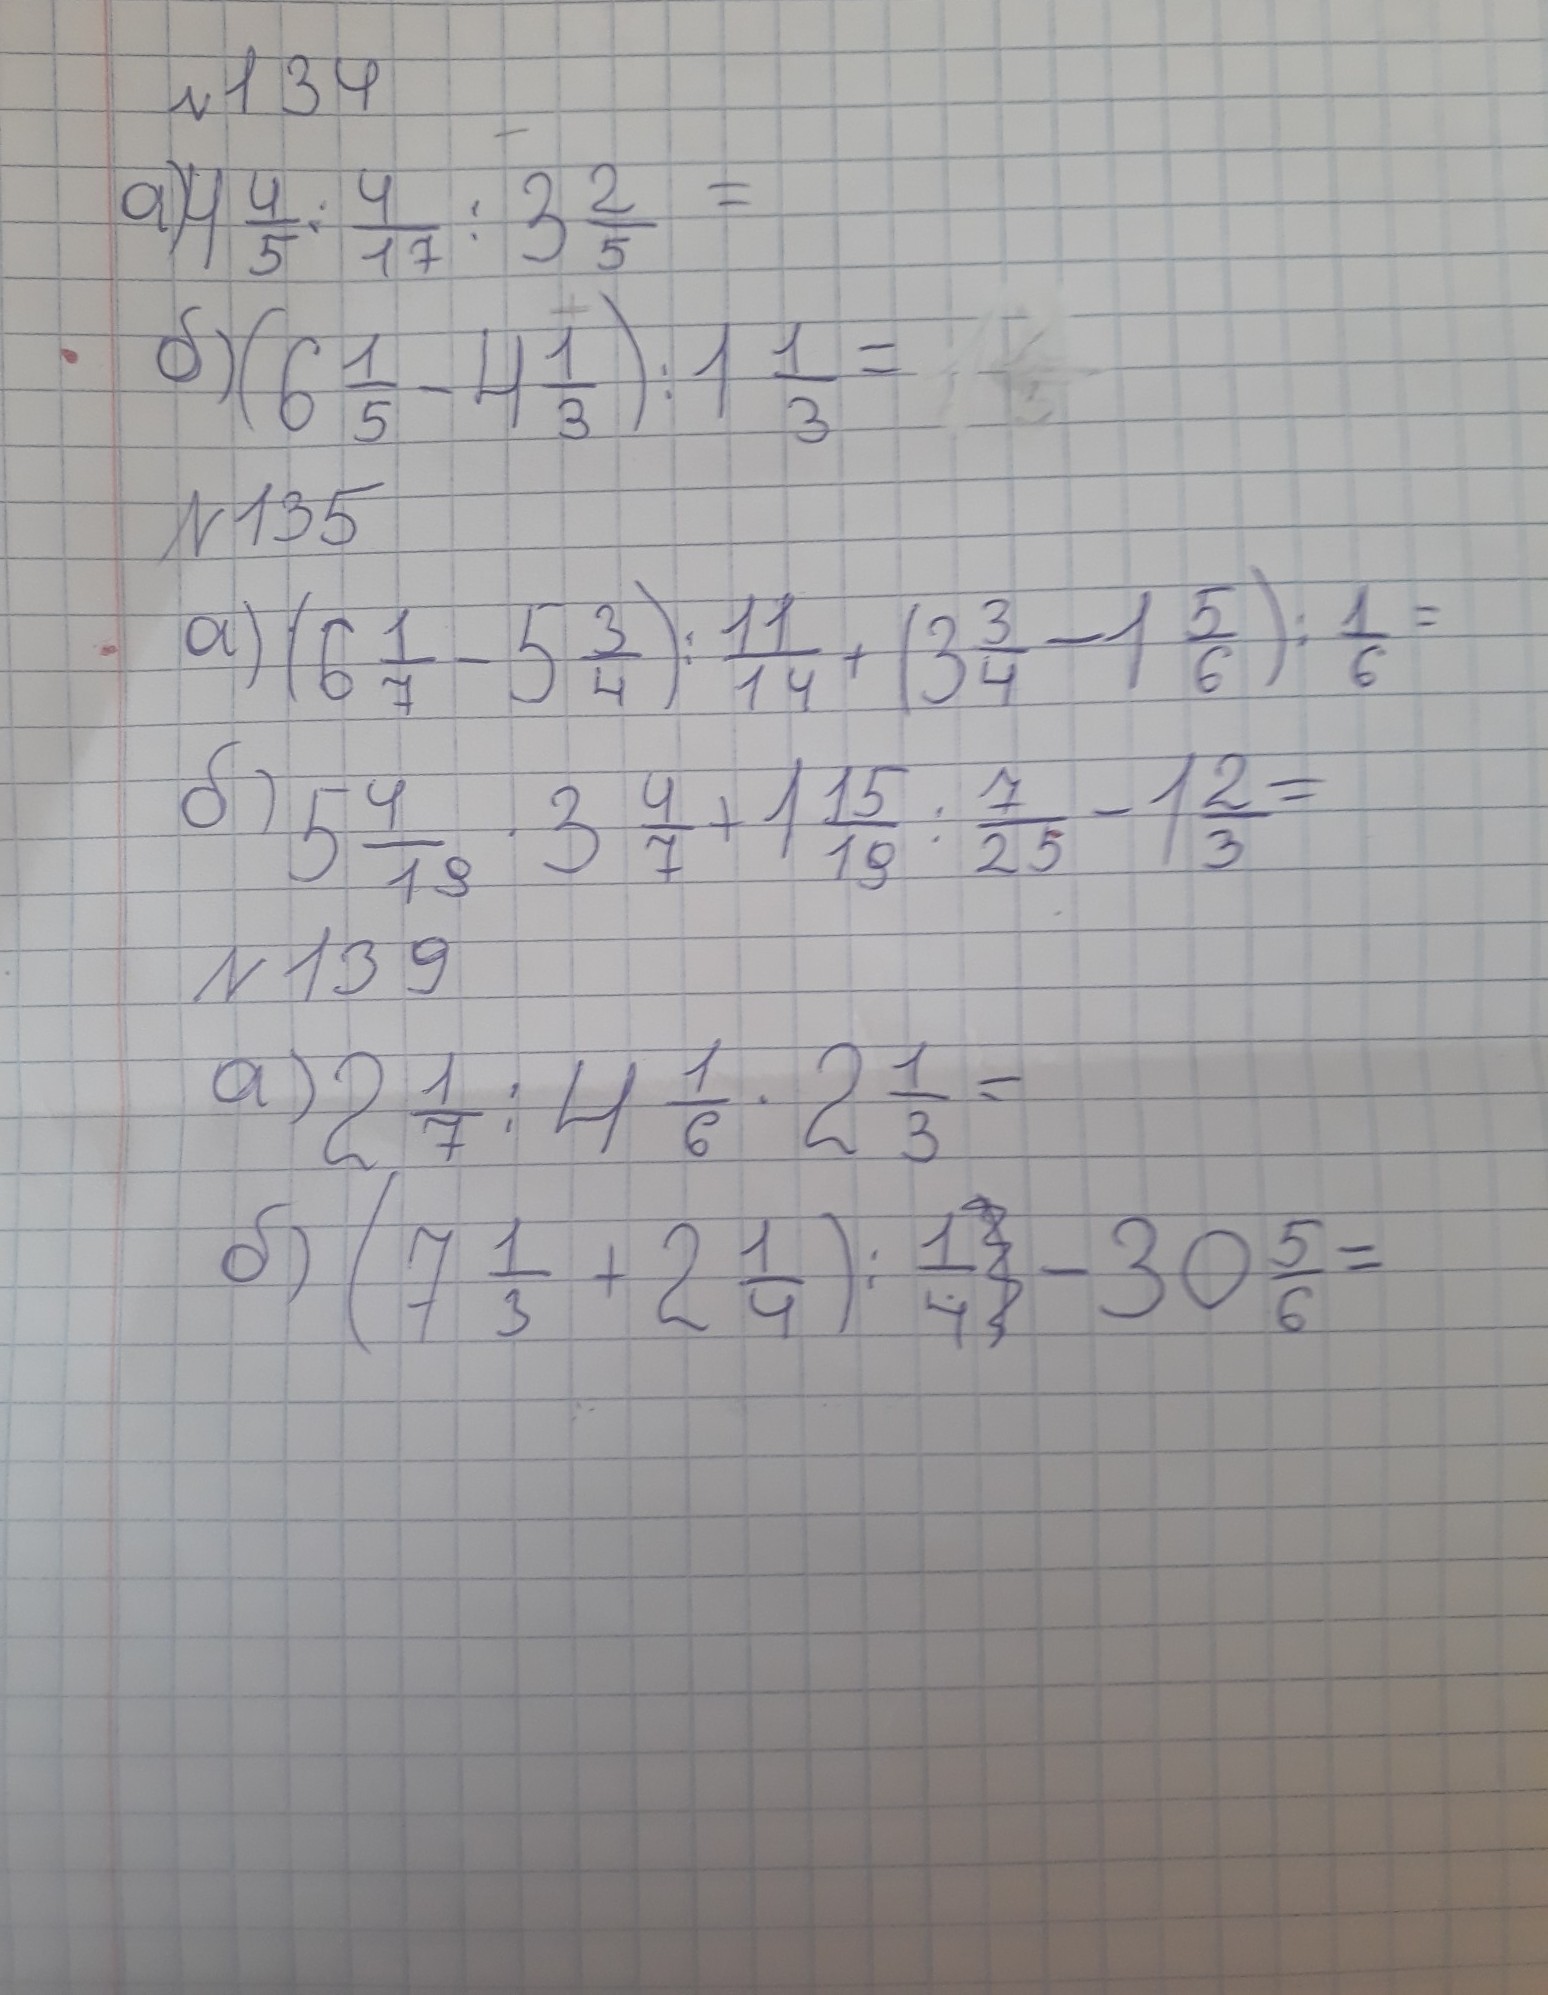 №134
а) 4 4/5 : 4/17 : 3 2/5 =
б) (6 1/5 - 4 1/3) : 1 1/3 =
№135
а) (6 1/7 - 5 3/4) : 11/14 + (3 3/4 - 1 5/6) : 1/6 =
б) 5 4/19 · 3 4/7 + 1 15/19 : 7/25 - 1 2/3 =
№139
а) 2 1/7 : 4 1/6 · 2 1/3 =
б) (7 1/3 + 2 1/4) : 1/4 - 30 5/6 =